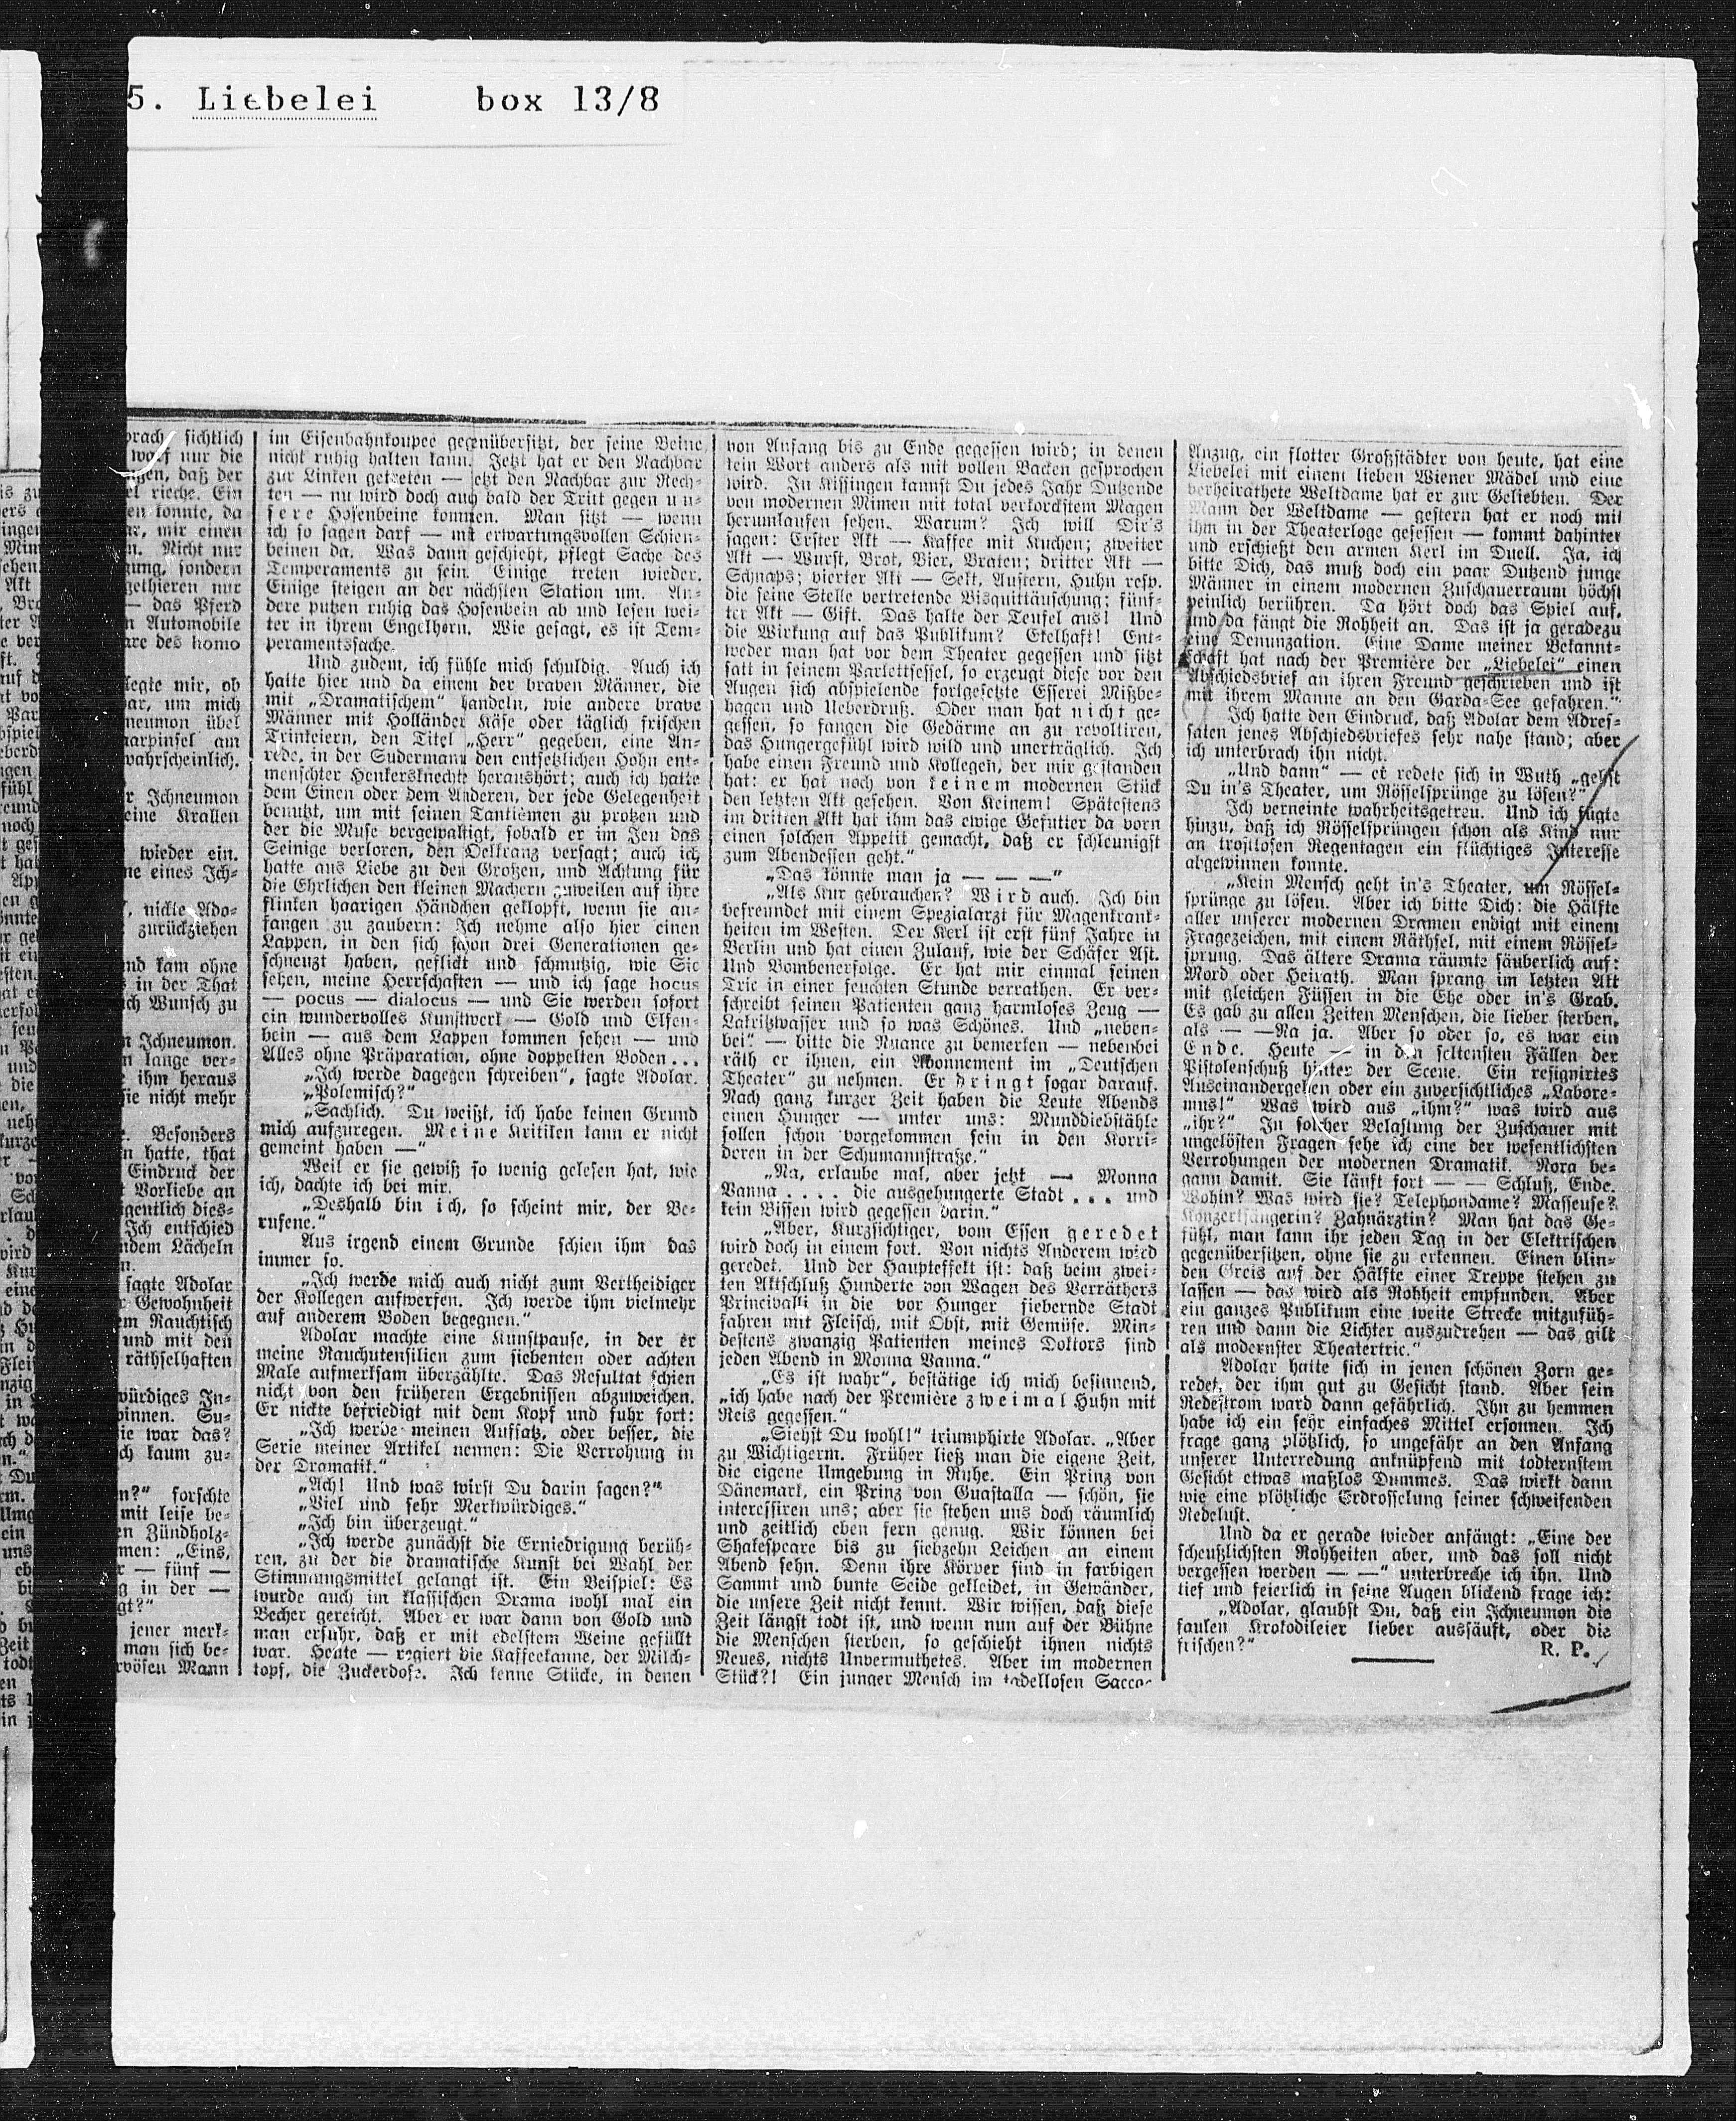 5. Liebelei box 13/8
sichtlich
warf nur die
daß der
rieche. Ein
konnte, da
mir einen
Nicht nur
sondern
nur
— das Pferd
Automobile
des homo
legte mir, ob
um mich
übel
am
wahrscheinlich.
Ichneumon
Krallen
wieder ein.
eines Ich-
nickte Ado-
zurückziehen
kam ohne
in der That
Wunsch zu
Ichneumon.
lange ver-
ihm heraus
nicht mehr
Besonders
hatte, that
Eindruck der
Vorliebe an
dies-
Ich entschied
Lächeln
sagte Adolar
Gewohnheit
Rauchtisch
und mit den
räthselhaften
würdiges In-
Su-
war das?
kaum zu-
forschte
mit leise be-
Zündholz-
„Eins,
— fünf —
in der —
jener merk-
man sich be-
Mann
im Eisenbahnkoupee gegenübersitzt, der seine Beine
nicht ruhig halten kann. Jetzt hat er den Nachbar
zur Linken getreten — jetzt den Nachbar zur Rech-
ten — nu wird doch auch bald der Tritt gegen un-
sere Hosenbeine kommen. Man sitzt — wenn
ich so sagen darf — mit erwartungsvollen Schien-
beinen da. Was dann geschieht, pflegt Sache des
Temperaments zu sein. Einige treten wieder.
Einige steigen an der nächsten Station um. An-
dere putzen ruhig das Hosenbein ab und lesen wei-
ter in ihrem Engelhorn. Wie gesagt, es ist Tem-
peramentssache.
Und zudem, ich fühle mich schuldig. Auch ich
hatte hier und da einem der braven Männer, die
mit „Dramatischem“ handeln, wie andere brave
Männer mit Holländer Käse oder täglich frischen
Trinkeiern, den Titel „Herr“ gegeben, eine An-
rede, in der Sudermann den entsetzlichen Hohn ent-
menschter Henkersknechte heraushört; auch ich hatte
dem Einen oder dem Anderen, der jede Gelegenheit
benutzt, um mit seinen Tantièmen zu protzen und
der die Muse vergewaltigt, sobald er im Jeu das
Seinige verloren, den Oelkranz versagt; auch ich
hatte aus Liebe zu den Großen, und Achtung für
die Ehrlichen den kleinen Machern zuweilen auf ihre
flinken haarigen Händchen geklopft, wenn sie an-
fangen zu zaubern: Ich nehme also hier einen
Lappen, in den sich schon drei Generationen ge-
schneuzt haben, geflickt und schmutzig, wie Sie
sehen, meine Herrschaften — und ich sage hocus
— pocus — dialocus — und Sie werden sofort
ein wundervolles Kunstwerk — Gold und Elfen-
bein — aus dem Lappen kommen sehen — und
Alles ohne Präparation, ohne doppelten Boden...
„Ich werde dagegen schreiben“, sagte Adolar.
„Polemisch?“
„Sachlich. Du weißt, ich habe keinen Grund
mich aufzuregen. Meine Kritiken kann er nicht
gemeint haben —“
Weil er sie gewiß so wenig gelesen hat, wie
ich, dachte ich bei mir.
„Deshalb bin ich, so scheint mir, der Be-
rufene.“
Aus irgend einem Grunde schien ihm das
immer so.
„Ich werde mich auch nicht zum Vertheidiger
der Kollegen aufwerfen. Ich werde ihm vielmehr
auf anderem Boden begegnen.“
Adolar machte eine Kunstpause, in der er
meine Rauchutensilien zum siebenten oder achten
Male aufmerksam überzählte. Das Resultat schien
nicht von den früheren Ergebnissen abzuweichen.
Er nickte befriedigt mit dem Kopf und fuhr fort:
„Ich werde meinen Aufsatz, oder besser, die
Serie meiner Artikel nennen: Die Verrohung in
der Dramatik.“
„Ach! Und was wirst Du darin sagen?“
„Viel und sehr Merkwürdiges.“
„Ich bin überzeugt.“
„Ich werde zunächst die Erniedrigung berüh-
ren, zu der die dramatische Kunst bei Wahl der
Stimmungsmittel gelangt ist. Ein Beispiel: Es
wurde auch im klassischen Drama wohl mal ein
Becher gereicht. Aber er war dann von Gold und
man erfuhr, daß er mit edelstem Weine gefüllt
war. Heute — regiert die Kaffeekanne, der Milch-
topf, die Zuckerdose. Ich kenne Stücke, in denen
von Anfang bis zu Ende gegessen wird; in denen
kein Wort anders als mit vollen Backen gesprochen
wird. In Kissingen kannst Du jedes Jahr Dutzende
von modernen Mimen mit total verkorkstem Magen
herumlaufen sehen. Warum? Ich will Dir's
sagen: Erster Akt — Kaffee mit Kuchen; zweiter
Akt — Wurst, Brot, Bier, Braten; dritter Akt —
Schnaps; vierter Akt — Sekt, Austern, Huhn resp.
die seine Stelle vertretende Bisquittäuschung; fünf-
ter Akt — Gift. Das halte der Teufel aus! Und
die Wirkung auf das Publikum? Ekelhaft! Ent-
weder man hat vor dem Theater gegessen und sitzt
satt in seinem Parkettsessel, so erzeugt diese vor den
Augen sich abspielende fortgesetzte Esserei Mißbe-
hagen und Ueberdruß. Oder man hat nicht ge-
gessen, so fangen die Gedärme an zu revoltiren,
das Hungergefühl wird wild und unerträglich. Ich
habe einen Freund und Kollegen, der mir gestanden
hat: er hat noch von keinem modernen Stück
den letzten Akt gesehen. Von Keinem! Spätestens
im dritten Akt hat ihm das ewige Gefutter da vorn
einen solchen Appetit gemacht, daß er schleunigst
zum Abendessen geht.“
„Das könnte man ja — — —“
„Als Kur gebrauchen? Wird auch. Ich bin
befreundet mit einem Spezialarzt für Magenkrank-
heiten im Westen. Der Kerl ist erst fünf Jahre in
Berlin und hat einen Zulauf, wie der Schäfer Ast.
Und Bombenerfolge. Er hat mir einmal seinen
Tric in einer feuchten Stunde verrathen. Er ver-
schreibt seinen Patienten ganz harmloses Zeug —
Lakritzwasser und so was Schönes. Und „neben-
bei“ — bitte die Nuance zu bemerken — nebenbei
räth er ihnen, ein Abonnement im „Deutschen
Theater“ zu nehmen. Er dringt sogar darauf.
Nach ganz kurzer Zeit haben die Leute Abends
einen Hunger — unter uns: Munddiebstähle
sollen schon vorgekommen sein in den Korri-
deren in der Schumannstraße.“
„Na, erlaube mal, aber jetzt — Monna
Vanna .... die ausgehungerte Stadt ... und
kein Bissen wird gegessen darin.“
„Aber, Kurzsichtiger, vom Essen geredet
wird doch in einem fort. Von nichts Anderem wird
geredet. Und der Haupteffekt ist: daß beim zwei-
ten Aktschluß Hunderte von Wagen des Verräthers
Principalli in die vor Hunger fiebernde Stadt
fahren mit Fleisch, mit Obst, mit Gemüse. Min-
destens zwanzig Patienten meines Doktors sind
jeden Abend in Monna Vanna.“
„Es ist wahr“, bestätige ich mich besinnend,
„ich habe nach der Première zweimal Huhn mit
Reis gegessen.“
„Siehst Du wohl!“ triumphirte Adolar. „Aber
zu Wichtigerm. Früher ließ man die eigene Zeit,
die eigene Umgebung in Ruhe. Ein Prinz von
Dänemark, ein Prinz von Guastalla — schön, sie
interessiren uns; aber sie stehen uns doch räumlich
und zeitlich eben fern genug. Wir können bei
Shakespeare bis zu siebzehn Leichen an einem
Abend sehn. Denn ihre Körper sind in farbigen
Sammt und bunte Seide gekleidet, in Gewänder,
die unsere Zeit nicht kennt. Wir wissen, daß diese
Zeit längst todt ist, und wenn nun auf der Bühne
die Menschen sterben, so geschieht ihnen nichts
Neues, nichts Unvermuthetes. Aber im modernen
Stück?! Ein junger Mensch im tadellosen Sacco-
Anzug, ein flotter Großstädter von heute, hat eine
Liebelei mit einem lieben Wiener Mädel und eine
verheirathete Weltdame hat er zur Geliebten. Der
Mann der Weltdame — gestern hat er noch mit
ihm in der Theaterloge gesessen — kommt dahinter
und erschießt den armen Kerl im Duell. Ja, ich
bitte Dich, das muß doch ein paar Dutzend junge
Männer in einem modernen Zuschauerraum höchst
peinlich berühren. Da hört doch das Spiel auf,
und da fängt die Rohheit an. Das ist ja geradezu
eine Denunzation. Eine Dame meiner Bekannt-
schaft hat nach der Première der „Liebelei“ einen
Abschiedsbrief an ihren Freund geschrieben und ist
mit ihrem Manne an den Garda-See gefahren.“
Ich hatte den Eindruck, daß Adolar dem Adres-
saten jenes Abschiedsbriefes sehr nahe stand; aber
ich unterbrach ihn nicht.
„Und dann“ — er redete sich in Wuth „gehst
Du in's Theater, um Rösselsprünge zu lösen?“
Ich verneinte wahrheitsgetreu. Und ich fügte
hinzu, daß ich Rösselsprüngen schon als Kind nur
an trostlosen Regentagen ein flüchtiges Interesse
abgewinnen konnte.
„Kein Mensch geht in's Theater, um Rössel-
sprünge zu lösen. Aber ich bitte Dich: die Hälfte
aller unserer modernen Dramen endigt mit einem
Fragezeichen, mit einem Räthsel, mit einem Rössel-
sprung. Das ältere Drama räumte säuberlich auf:
Mord oder Heirath. Man sprang im letzten Akt
mit gleichen Füssen in die Ehe oder in's Grab.
Es gab zu allen Zeiten Menschen, die lieber sterben,
als — —Na ja. Aber so oder so, es war ein
Ende. Heute — in den seltensten Fällen der
Pistolenschuß hinter der Scene. Ein resignirtes
Auseinandergehen oder ein zuversichtliches „Labore-
mus!“ Was wird aus „ihm?“ was wird aus
„ihr?“ In solcher Belastung der Zuschauer mit
ungelösten Fragen sehe ich eine der wesentlichsten
Verrohungen der modernen Dramatik. Nora be-
gann damit. Sie läuft fort — — Schluß, Ende.
Wohin? Was wird sie? Telephondame? Masseuse?
Konzertsängerin? Zahnärztin? Man hat das Ge-
fühl, man kann ihr jeden Tag in der Elektrischen
gegenübersitzen, ohne sie zu erkennen. Einen blin-
den Greis auf der Hälfte einer Treppe stehen zu
lassen — das wird als Rohheit empfunden. Aber
ein ganzes Publikum eine weite Strecke mitzufüh-
ren und dann die Lichter auszudrehen — das gilt
als modernster Theatertric.“
Adolar hatte sich in jenen schönen Zorn ge-
redet, der ihm gut zu Gesicht stand. Aber sein
Redestrom ward dann gefährlich. Ihn zu hemmen
habe ich ein sehr einfaches Mittel ersonnen. Ich
frage ganz plötzlich, so ungefähr an den Anfang
unserer Unterredung anknüpfend mit todternstem
Gesicht etwas maßlos Dummes. Das wirkt dann
wie eine plötzliche Erdrosselung seiner schweifenden
Redelust.
Und da er gerade wieder anfängt: „Eine der
scheußlichsten Rohheiten aber, und das soll nicht
vergessen werden — —“ unterbreche ich ihn. Und
tief und feierlich in seine Augen blickend frage ich:
„Adolar, glaubst Du, daß ein Ichneumon die
faulen Krokodileier lieber aussäuft, oder die
frischen?“ R. P.